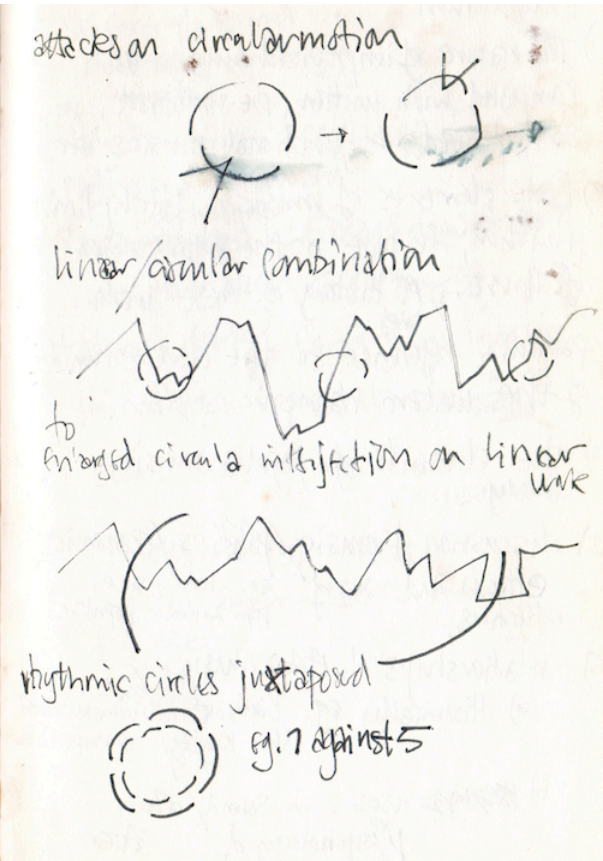 attacks on circular motion
linear/circular combination
to
enlarged circula intesifection on linear
wave
rhythmic circles juxtaposed
eg. 7 against 5